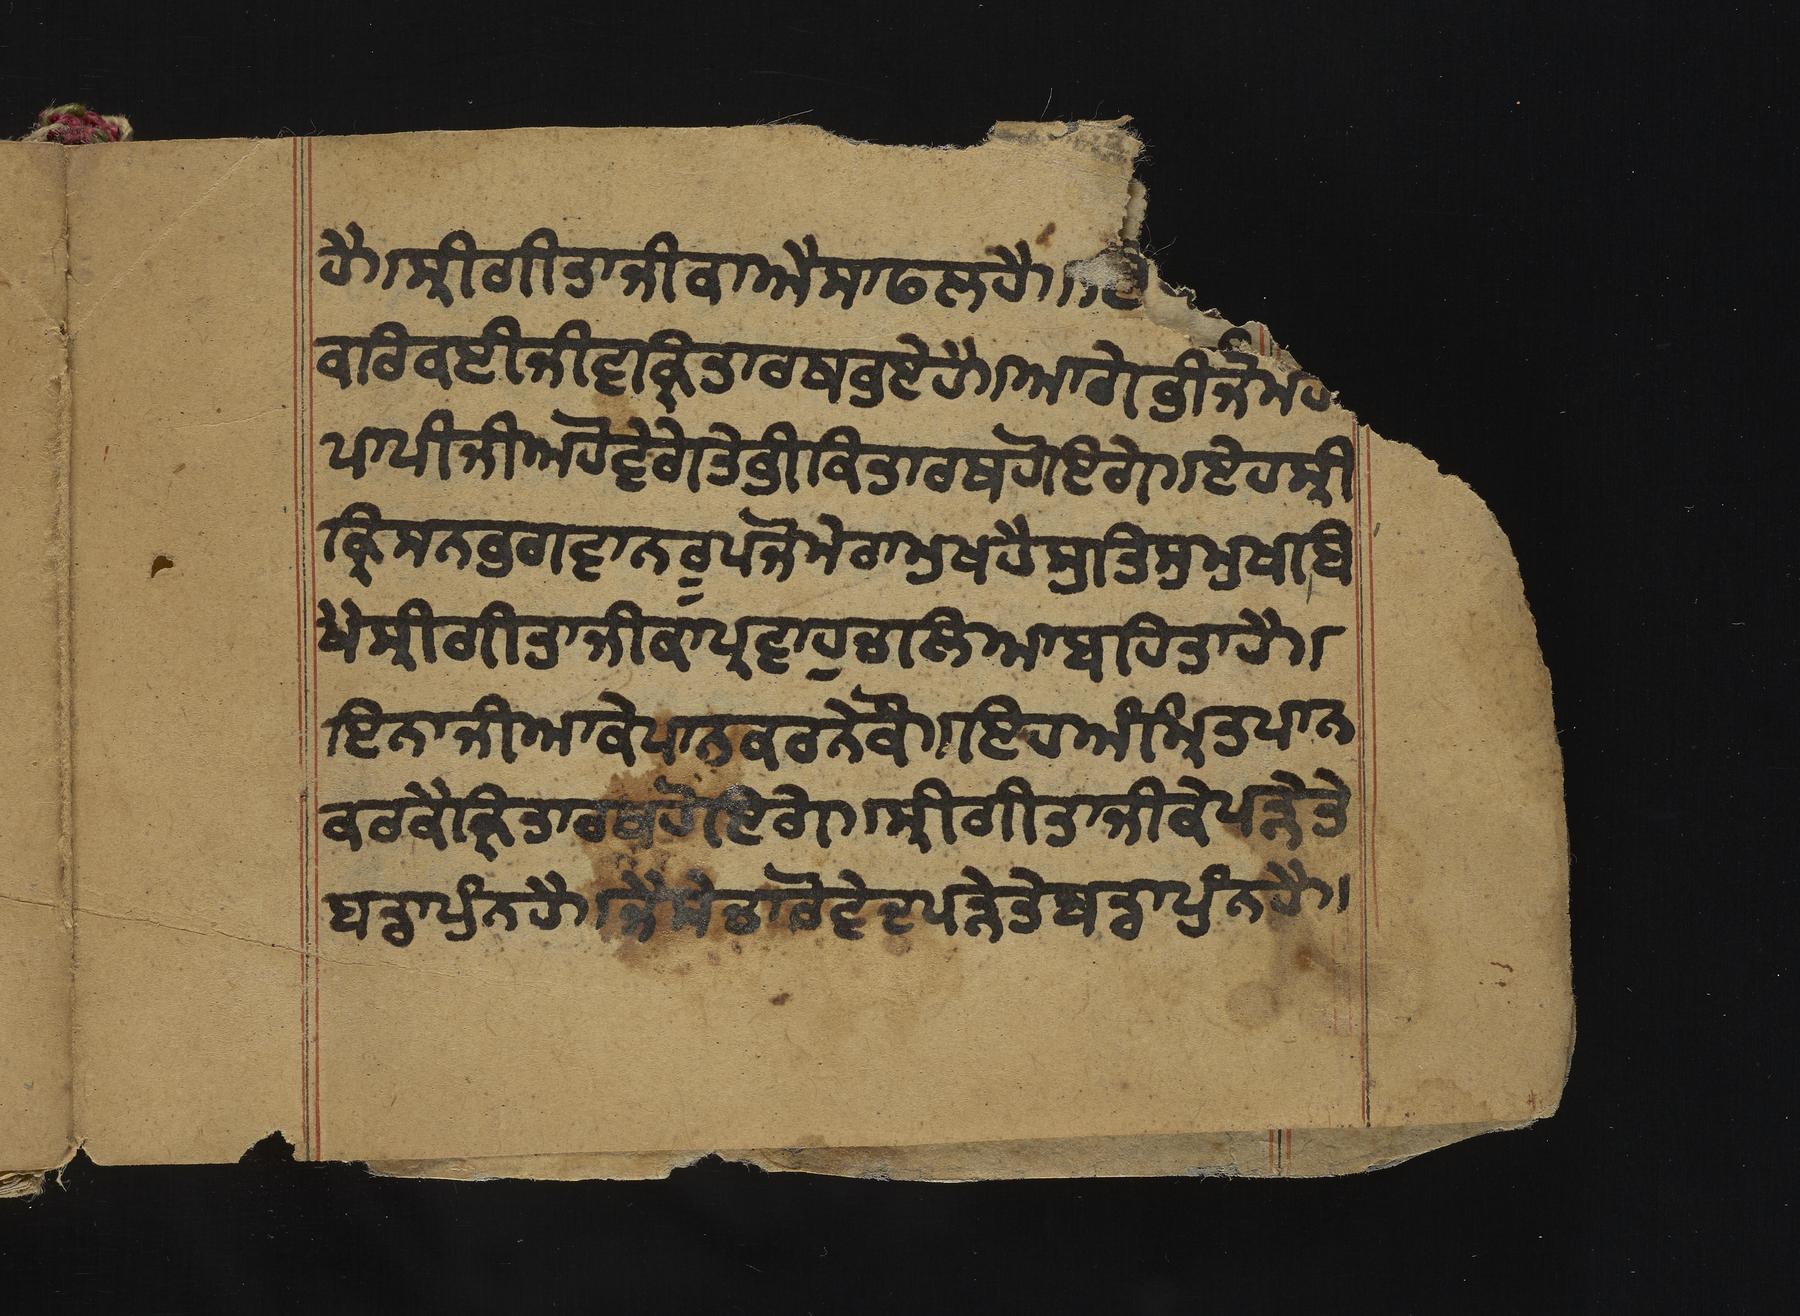 ਹੈ॥ਸ੍ਰੀਗੀਤਾਜੀਕਾਐਸਾਫਲਹੈ॥
ਕਰਿਕਈਜੀਵਕ੍ਰਿਤਾਰਥਭਏਹੈ॥ਆਗੇਭੀਜੋ
ਪਾਪੀਜੀਅਹੋਵੇਗੇਤੇਭੀਕਿਤਾਰਥਹੋਇਗੇ॥ਏਹਸ੍ਰੀ
ਕ੍ਰਿਸਨਭਗਵਾਨਰੂਪਜੋਮੇਰਾਮੁਖਹੈਸੁਤਿਸੁਮੁਖਬਿ
ਖੇਸ੍ਰੀਗੀਤਾਜੀਕਾਪ੍ਰਵਾਹੁਚਲਿਆਬਹਿਤਾਹੈ॥
ਇਨਾਜੀਆਕੇਪਾਨਕਰਨੇਕੌ॥ਇਹਅੰਮ੍ਰਿਤਪਾਨ
ਕਰਕੈਕ੍ਰਿਤਾਰਥਹੋਇਗੇ॥ਸ੍ਰੀਗੀਤਾਜੀਕੇਪੜ੍ਹੇਤੇ
ਬਡਾਪੁੰਨਹੈ॥ਜੈਸੇਚਾਰੋਵੇਦਪੜ੍ਹੇਤੇਬਡਾਪੁੰਨਹੈ॥